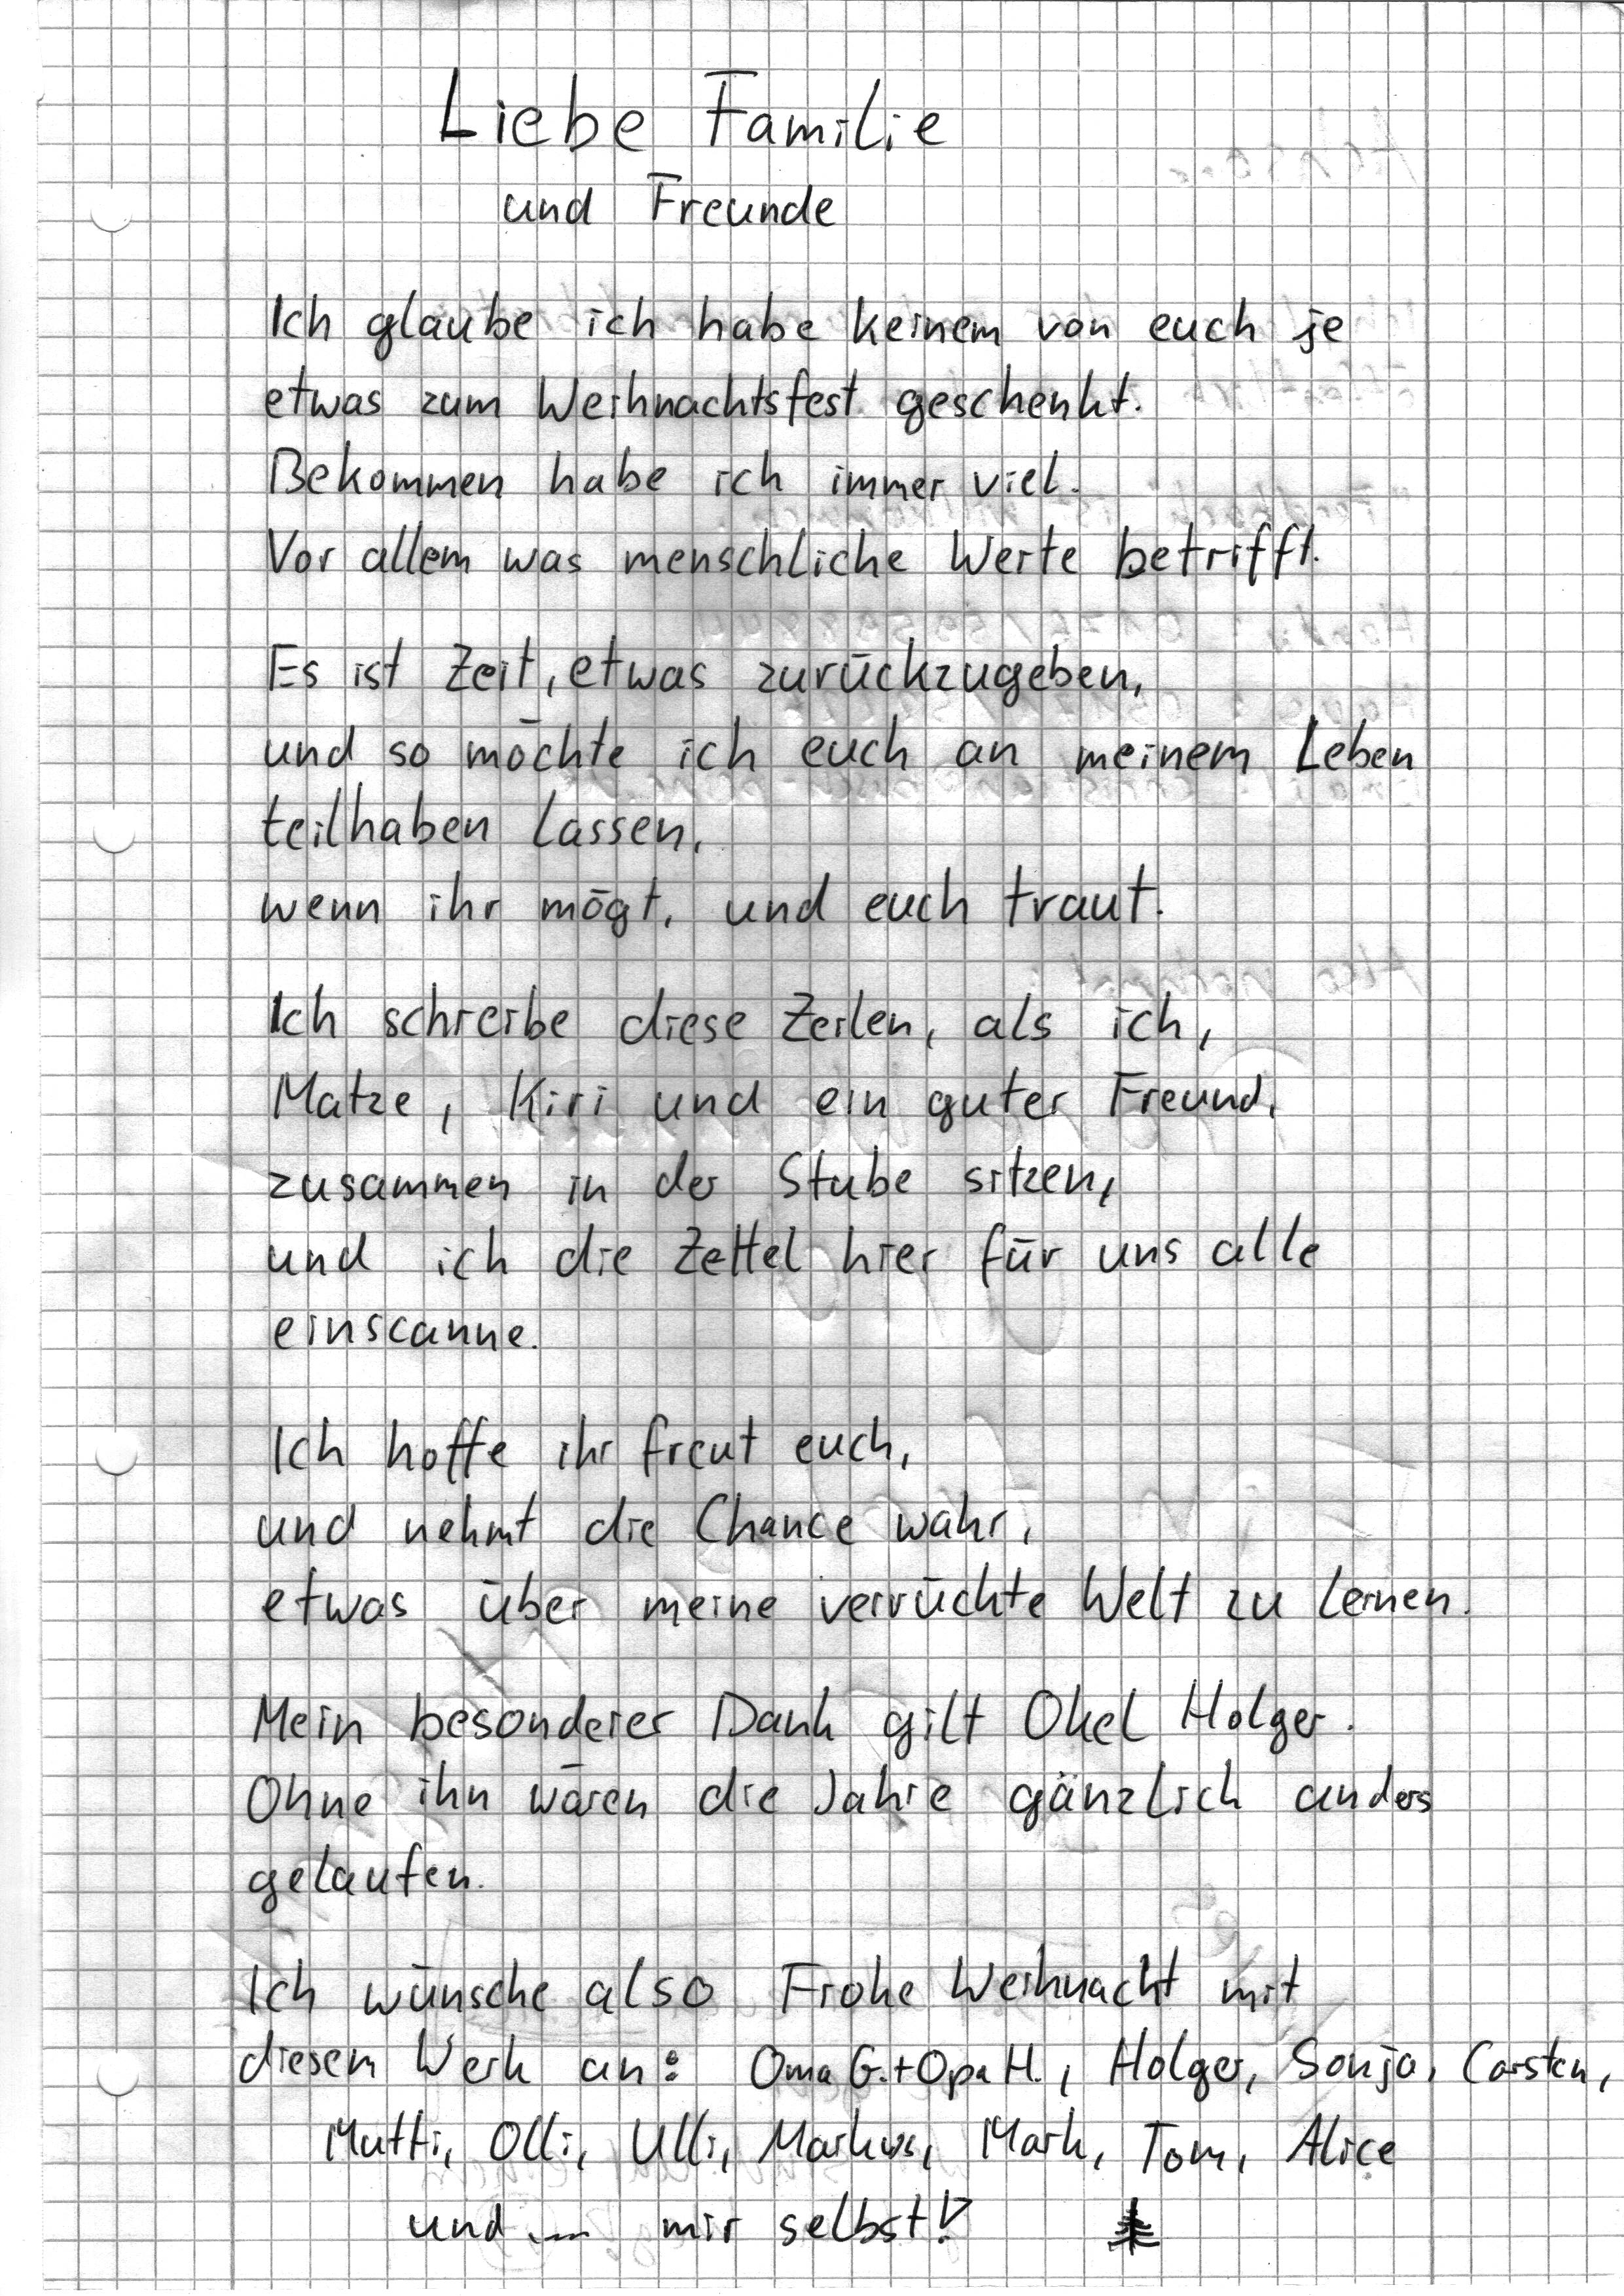 Liebe Familie
und Freunde
Ich glaube ich habe keinem von euch je
etwas zum Weihnachtsfest geschenkt.
Bekommen habe ich immer viel.
Vor allem was menschliche Werte betrifft.
Es ist Zeit, etwas zurückzugeben,
und so möchte ich euch an meinem Leben
teilhaben lassen,
wenn ihr mögt, und euch traut.
Ich schreibe diese Zeilen, als ich,
Matze, Kiri und ein guter Freund,
zusammen in der Stube sitzen,
und ich die Zettel hier für uns alle
einscanne.
Ich hoffe ihr freut euch,
und nehmt die Chance wahr,
etwas über meine verrückte Welt zu lernen.
Mein besonderer Dank gilt Okel Holger.
Ohne ihn wären die Jahre gänzlich anders
gelaufen.
Ich wünsche also Frohe Weihnacht mit
diesem Werk an: Oma G.+Opa H., Holger, Sonja, Carsten,
Mutti, Olli, Ulli, Markus, Mark, Tom, Alice
und ... mir selbst!